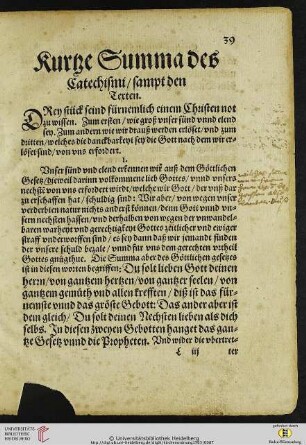 39
Kurtze Summa des
Catechismi / sampt den
Texten.
DRey stück seind fürnemlich einem Christen not
zu wissen. Zum ersten / wie groß vnser sünd vnnd elend
sey. Zum andern wie wir drauß werden erlößt / vnd zum
dritten / welches die danckbarkeyt sey die Gott nach dem wir er-
lößet sind / von vns erfordert.
I.
Vnser sünd vnd elend erkennen wir auß dem Göttlichen
Gesetz / dieweil darinn vollkommene lieb Gottes / vnnd vnsers
nechsten von vns erfordert wirdt / welche wir Gott / der vns dar
zu erschaffen hat / schuldig sind: Wir aber / von wegen vnser
verderbten natur nichts anderst können / denn Gott vnnd vn-
sern nechsten hassen / vnd derhalben von wegen der vnwandel-
baren warheyt vnd gerechtigkeyt Gottes zeitlicher vnd ewiger
straff vnderworffen sind / es sey dann daß wir jemandt finden
der vnsere schuld bezale / vnnd für vns dem gerechten vrtheil
Gottes gnůgthue. Die Summa aber des Göttlichen gesetzes
ist in diesen worten begriffen: Du solt lieben Gott deinen
herrn / von gantzem hertzen / von gantzer seelen / von
gantzem gemüth vnd allen krefften / diß ist das für-
nemste vnnd das gröste Gebott: Das ander aber ist
dem gleich / Du solt deinen Nechsten lieben als dich
selbs. In diesen zweyen Gebotten hanget das gan-
tze Gesetz vnnd die Propheten. Vnd wider die vbertret-
L iij ter
UNIVERSITÄTS-
BIBLIOTHEK
HEIDELBERG
© Universitätsbibliothek Heidelberg